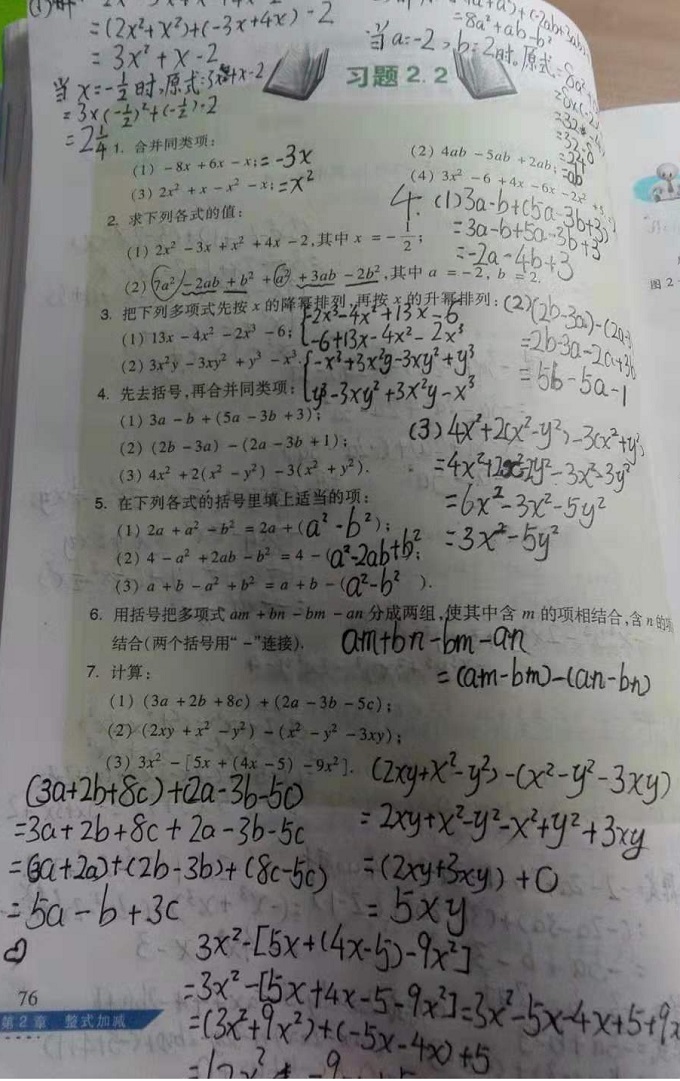 =(2x²+x²)+(-3x+4x)-2
=3x²+x-2
当x=-1/2时,原式:3x²+x-2
=3×(-1/2)²+(-1/2)-2
=2 1/4
=8a²+ab-b²
当a=-2,b=2时,原式=
习题2.2
1. 合并同类项:
(1) -8x+6x-x;=-3x
(2) 4ab-5ab+2ab;=ab
(3) 2x²+x-x²-x;=x²
(4) 3x²-6+4x-6x-2x²
2. 求下列各式的值:
(1) 2x²-3x+x²+4x-2,其中x=-1/2;
(2) 7a²-2ab+b²+a²+3ab-2b²,其中a=-2,b=2.
3. 把下列多项式先按x的降幂排列,再按x的升幂排列:
(1) 13x-4x²-2x³-6;
-2x³-4x²+13x-6
-6+13x-4x²-2x³
(2) 3x²y-3xy²+y³-x³.
-x³+3x²y-3xy²+y³
y³-3xy²+3x²y-x³
4. 先去括号,再合并同类项:
(1) 3a-b+(5a-3b+3);
(2) (2b-3a)-(2a-3b+1);
(3) 4x²+2(x²-y²)-3(x²+y²).
4.(1)3a-b+(5a-3b+3)
=3a-b+5a-3b+3
=-2a-4b+3
(2)(2b-3a)-(2a-3
=2b-3a-2a+3b
=5b-5a-1
(3)4x²+2(x²-y²)-3(x²+y²)
=4x²+2x²-2y²-3x²-3y²
=6x²-3x²-5y²
=3x²-5y²
5. 在下列各式的括号里填上适当的项:
(1) 2a+a²-b²=2a+(a²-b²);
(2) 4-a²+2ab-b²=4-(a²-2ab+b²;
(3) a+b-a²+b²=a+b-(a²-b²).
6. 用括号把多项式am+bn-bm-an分成两组,使其中含m的项相结合,含n的项
结合(两个括号用“-”连接).
am+bn-bm-an
=(am-bm)-(an-bn)
7. 计算:
(1) (3a+2b+8c)+(2a-3b-5c);
(2) (2xy+x²-y²)-(x²-y²-3xy);
(3) 3x²-[5x+(4x-5)-9x²].
(3a+2b+8c)+(2a-3b-5c)
=3a+2b+8c+2a-3b-5c
=(3a+2a)+(2b-3b)+(8c-5c)
=5a-b+3c
(2xy+x²-y²)-(x²-y²-3xy)
=2xy+x²-y²-x²+y²+3xy
=(2xy+3xy)+0
=5xy
3x²-[5x+(4x-5)-9x²]
=3x²-[5x+4x-5-9x²]=3x²-5x-4x+5+9x
=(3x²+9x²)+(-5x-4x)+5
76
第2章 整式加减
图2